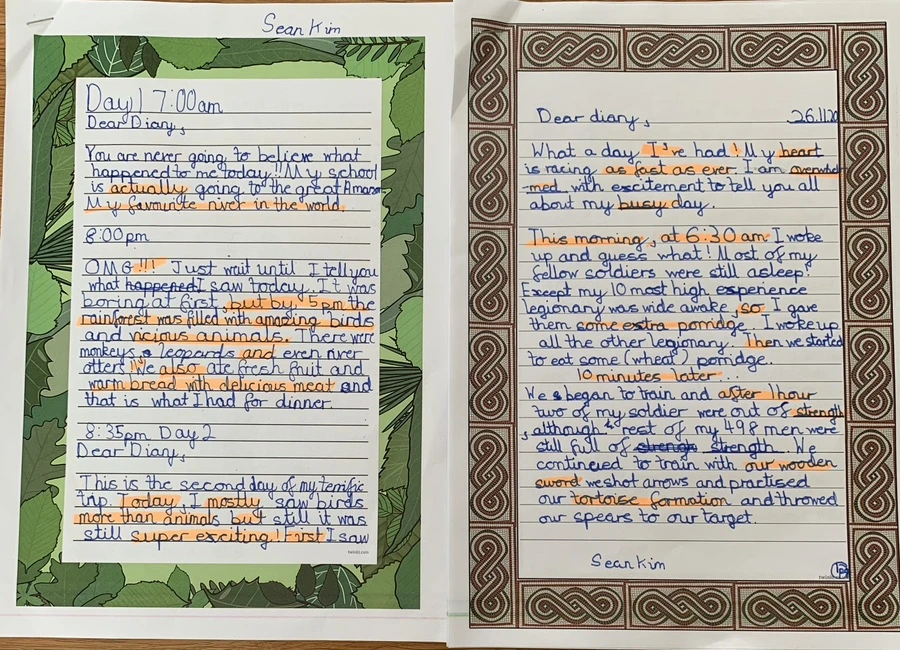 Sean Kim
Day 1 7:00am
Dear Diary,
You are never going to believe what
happened to me today!! My school
is actually going to the great Amazon
My favourite river in the world.
8:00pm
OMG!!! Just wait until I tell you
what happened I saw today. It was
boring at first, but by, 5pm the
rainforest was filled with amazing birds
and vicious animals. There were
monkeys, leopards and even river
otters! We also ate fresh fruit and
warm bread with delicious meat and
that is what I had for dinner.
8:35pm Day 2
Dear Diary,
This is the second day of my terrific
trip. Today, I mostly saw birds
more than animals but still it was
still super exciting! First I saw
twinkl.com
Dear diary, 26.11.20
What a day I've had! My heart
is racing as fast as ever. I am overwhel
-med with excitement to tell you all
about my busy day.
This morning, at 6:30 am I woke
up and guess what! Most of my
fellow soldiers were still asleep!
Except my 10 most high experience
legionary was wide awake, so I gave
them some extra porridge. I woke up
all the other legionary. Then we started
to eat some (wheat) porridge.
10 minutes later...
We began to train and after 1 hour
two of my soldier were out of strength
, although rest of my 498 men were
still full of strengh strength. We
contineued to train with our wooden
sword we shot arows and practised
our tortoise formation and throwed
our spears to our target.
Sean Kim